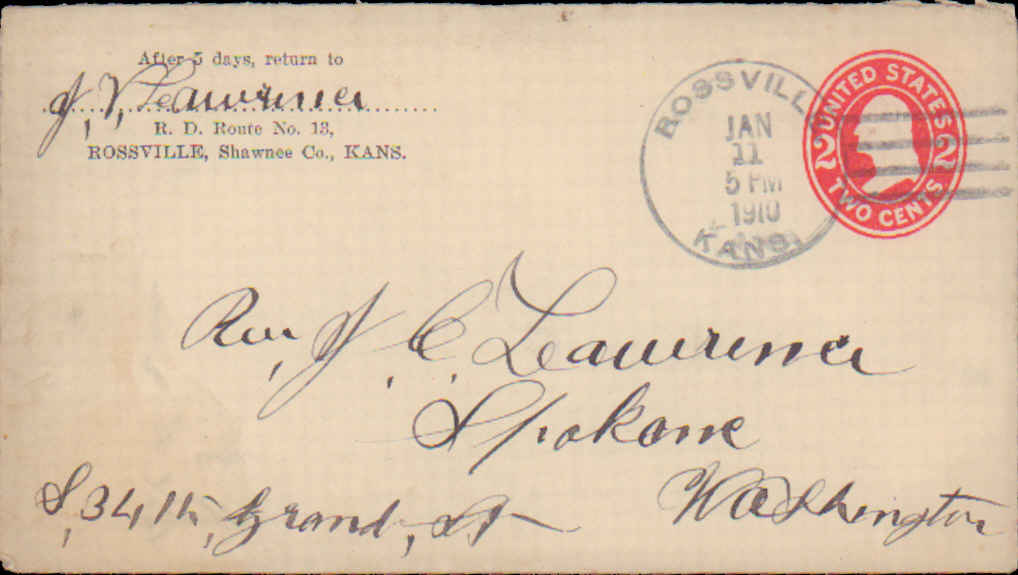 After 5 days, return to
J. V. Lawrence
R. D. Route No. 13,
ROSSVILLE, Shawnee Co., KANS.
ROSSVILL
JAN
11
5 PM
1910
KANS.
UNITED STATES
2 2
TWO CENTS
Rev, J. C. Lawrence
Spokane
Washington
S, 34th, Grand, St